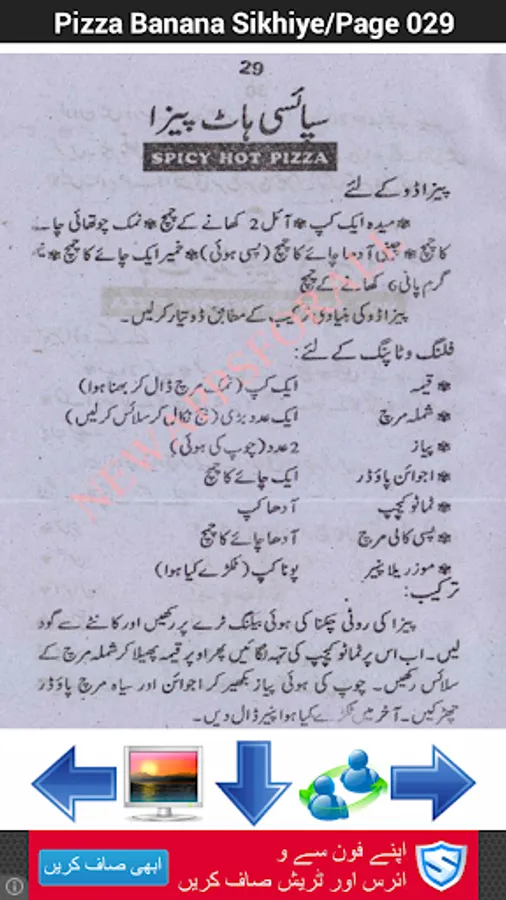 Pizza Banana Sikhiye/Page 029
29
سپائسی ہاٹ پیزا
SPICY HOT PIZZA
پیزا ڈو کے لئے
❃ میدہ ایک کپ ❃ آئل 2 کھانے کے چمچ ❃ نمک چوتھائی چائے
کا چمچ ❃ چینی آدھا چائے کا چمچ (پسی ہوئی) ❃ خمیر ایک چائے کا چمچ ❃ نیم
گرم پانی 6 کھانے کے چمچ
پیزا ڈو کی بنیادی ترکیب کے مطابق ڈو تیار کرلیں۔
فلنگ وٹاپنگ کے لئے:
❃ قیمہ ایک کپ (نمک مرچ ڈال کر بھنا ہوا)
❃ شملہ مرچ ایک عدد بڑی (بیج نکال کر سلائس کرلیں)
❃ پیاز 2 عدد (چوپ کی ہوئی)
❃ اجوائن پاؤڈر ایک چائے کا چمچ
❃ ٹماٹو کیچپ آدھا کپ
❃ پسی کالی مرچ آدھا چائے کا چمچ
❃ موزریلا پنیر پونا کپ (ٹکڑے کیا ہوا)
ترکیب:
پیزا کی روٹی چکنا کی ہوئی بیکنگ ٹرے پر رکھیں اور کانٹے سے گود
لیں۔ اب اس پر ٹماٹو کیچپ کی تہہ لگائیں پھر اوپر قیمہ پھیلا کر شملہ مرچ کے
سلائس رکھیں۔ چوپ کی ہوئی پیاز بکھیر کر اجوائن اور سیاہ مرچ پاؤڈر
چھڑکیں۔ آخر میں ٹکڑے کیا ہوا پنیر ڈال دیں۔
NEWAPPSFORALL
اپنے فون سے و
ائرس اور ٹریش صاف کریں
ابھی صاف کریں